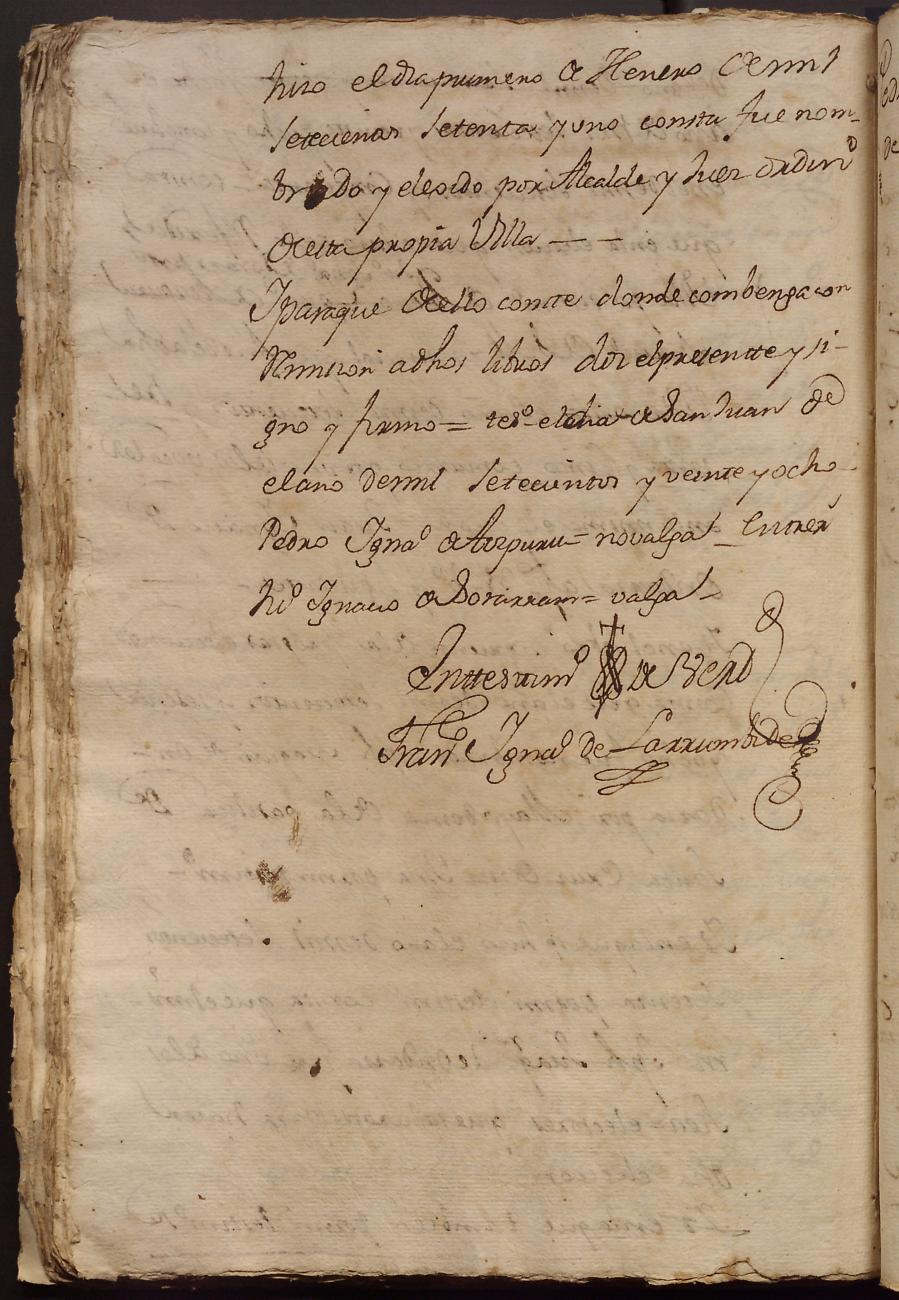 hizo el dia primero de Henero de mil
setecienos setenta y uno consta fue nom-
brado y elexido por Alcalde y Juez ordinº
de esta propia Villa — —
Y para que de ello conste donde combenga con
Remision a dhos libros doi el presentte y si-
gno y firmo = tesº el dia de San Juan de
el ano de mil setecientos y veinte y ocho
Pedro Ignaº de Aizpuru = no valga — Entrerr
hiº Ignacio de = valga —
In ttestimº de Verd
Franº Ignaº de Larrumbide